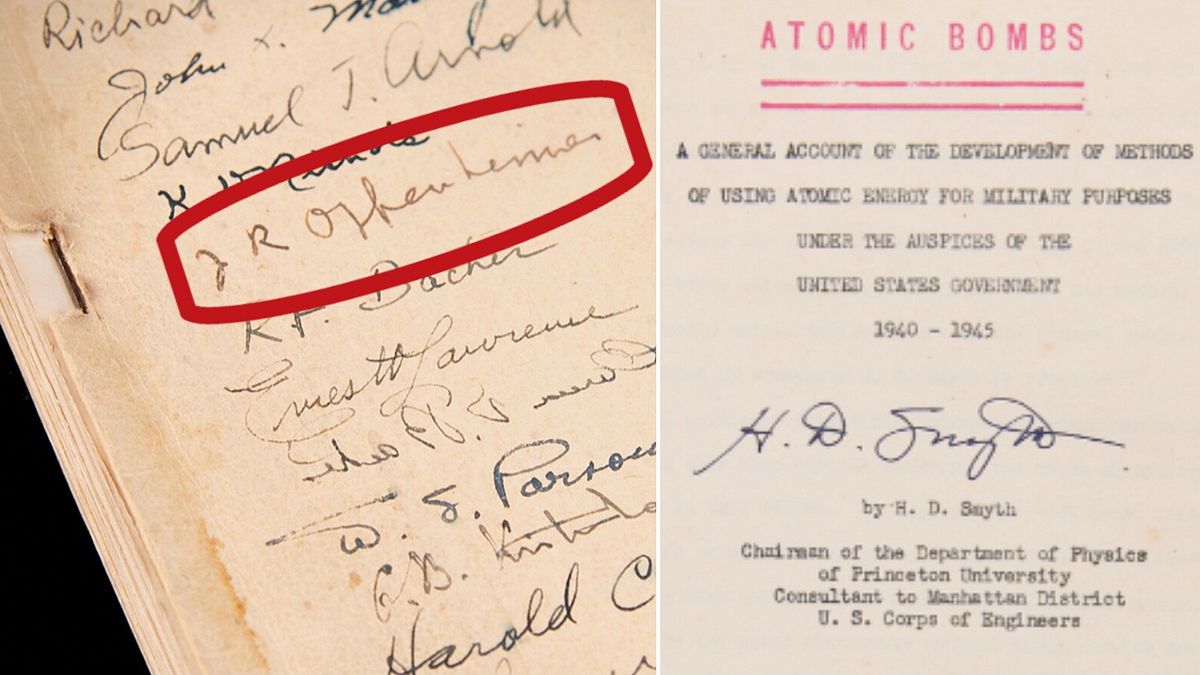 Richard
John X.
Samuel T. Arnold
K
J R Oppenheimer
R F. Bacher
Ernest Lawrence
W. S. Parsons
G. B. Kistiako
Harold C
ATOMIC BOMBS
A GENERAL ACCOUNT OF THE DEVELOPMENT OF METHODS
OF USING ATOMIC ENERGY FOR MILITARY PURPOSES
UNDER THE AUSPICES OF THE
UNITED STATES GOVERNMENT
1940 - 1945
H. D. Smyth
by H. D. Smyth
Chairman of the Department of Physics
of Princeton University
Consultant to Manhattan District
U. S. Corps of Engineers